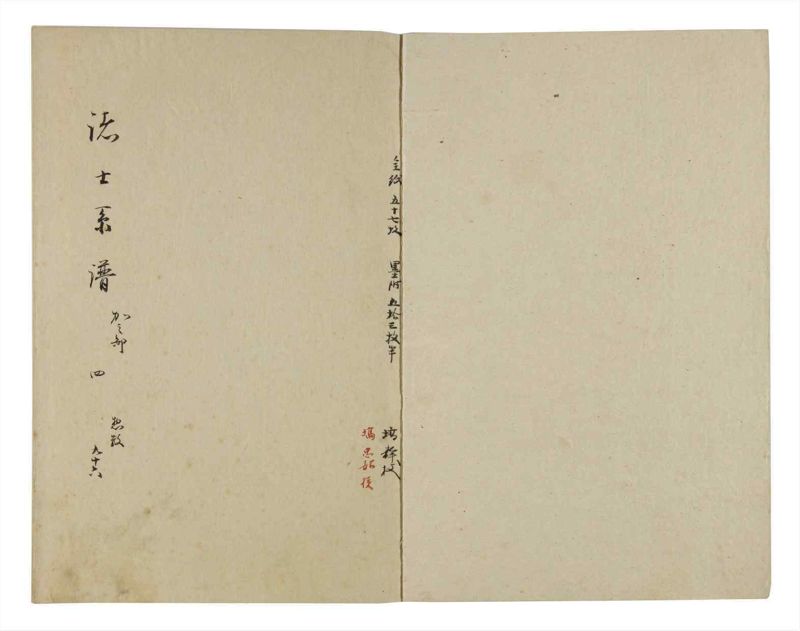 全紙 五十七枚 墨附 五拾三枚半
塙 忠
諸士系譜 加之部 四 惣数 九十六